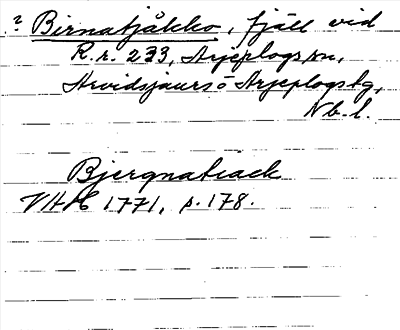 ? Birnatjåkko, fjäll vid
R.r. 233, Arjeplogs sn,
Arvidsjaurs o Arjeplogs tg,
Nb. l.
Bjergnatiack
VHAE 1771, p. 178.